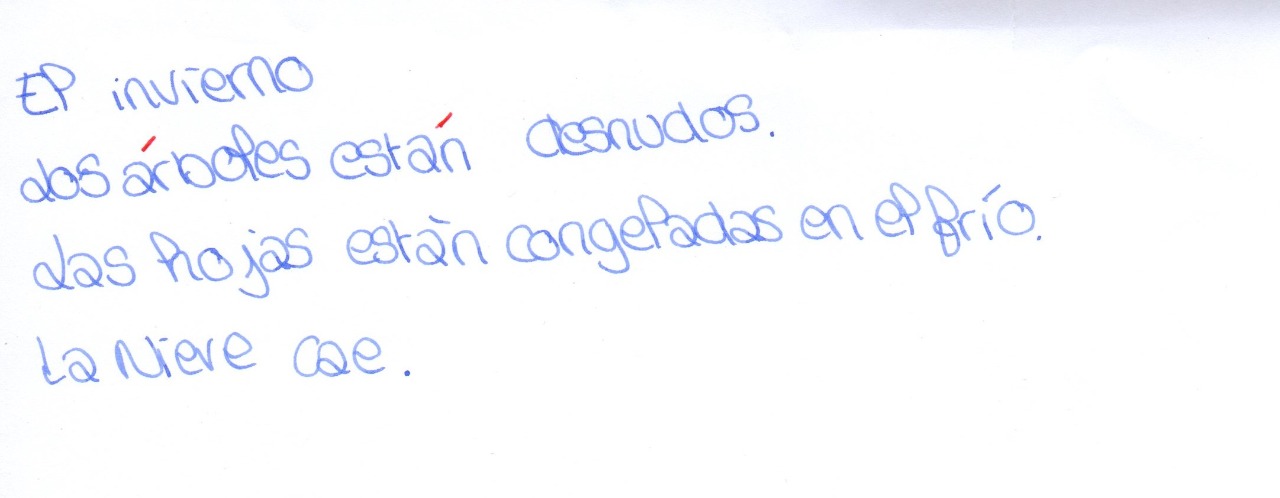 El invierno
Los árboles están desnudos.
Las hojas estàn congeladas en el frío.
La Nieve cae.